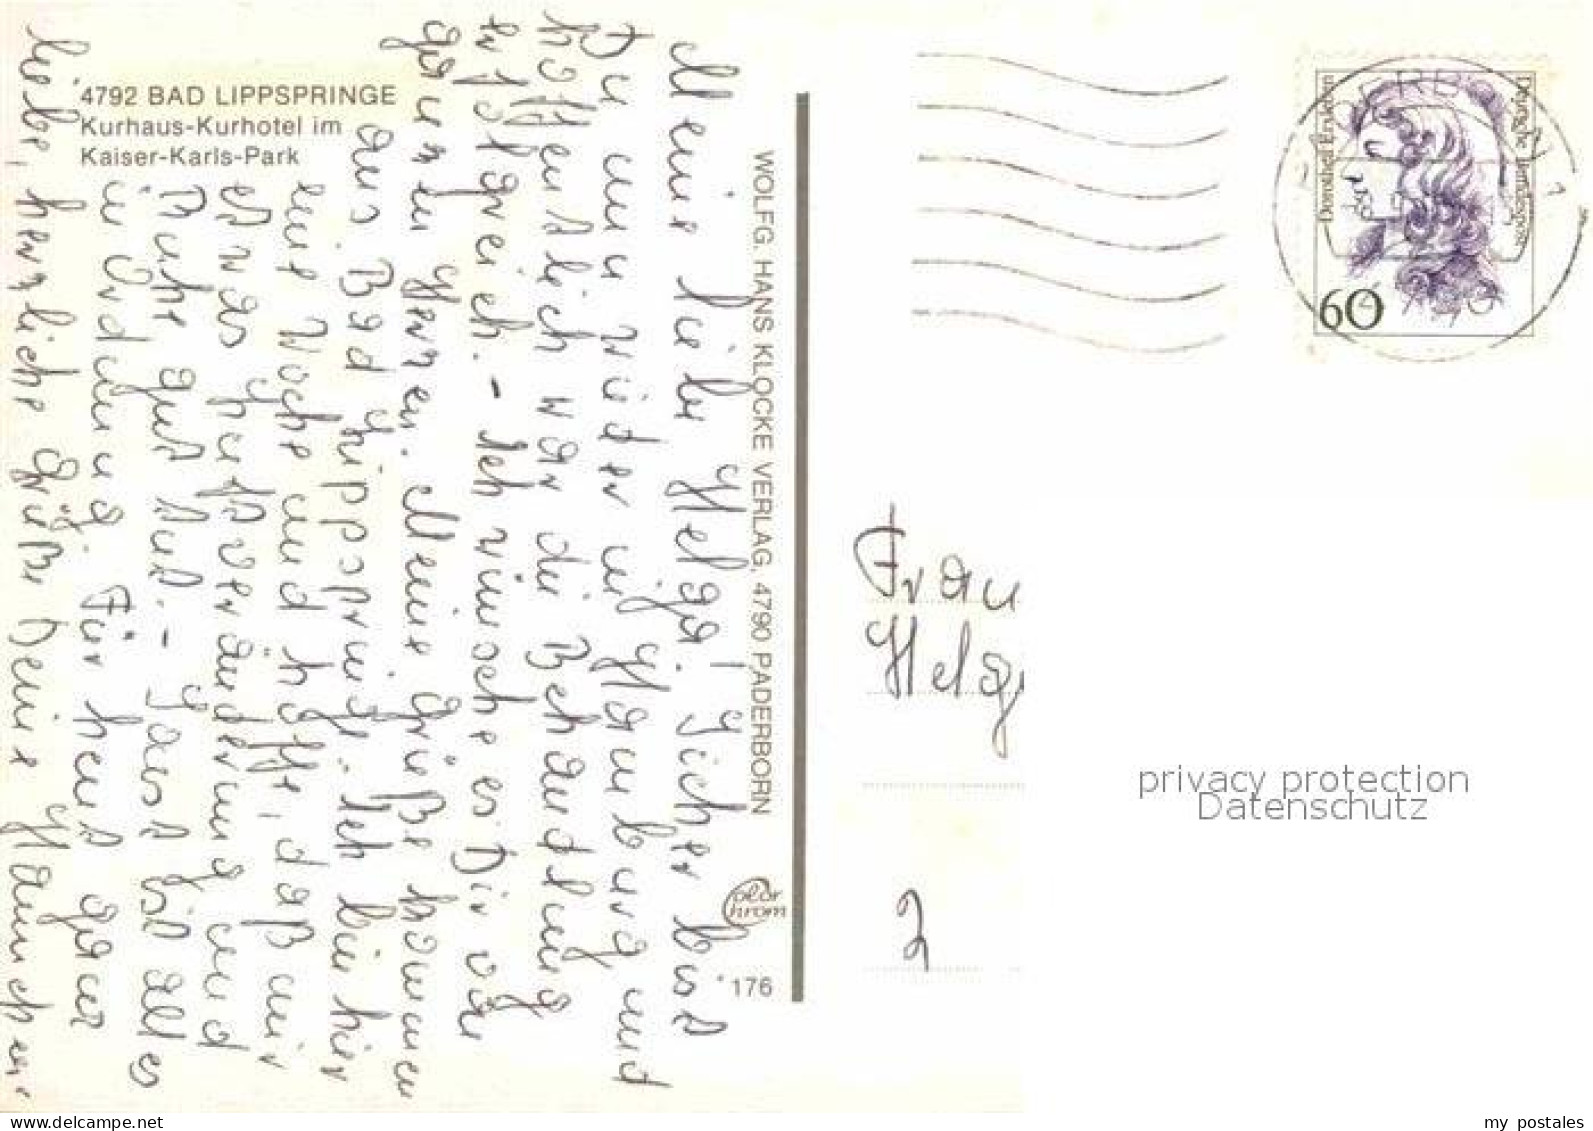 4792 BAD LIPPSPRINGE
Kurhaus-Kurhotel im
Kaiser-Karls-Park
Meine liebe Helga! Sicher bist
Du nun wieder in Hamburg und
hoffentlich war die Behandlung
erfolgreich. - Ich wünsche es Dir von
ganzem Herzen. Meine Grüße kommen
aus Bad Lippspringe. Ich bin hier
eine Woche und hoffe, daß mir
etwas Luftveränderung und
Ruhe gut tut. - Sonst ist alles
in Ordnung. Für heut ganz
liebe, herzliche Grüße Deine
WOLFG. HANS KLOCKE VERLAG, 4790 PADERBORN
Color
Chrom
176
Dorothea Erxleben
Deutsche Bundespost
60
Frau
Helga
2
privacy protection
Datenschutz
my postales